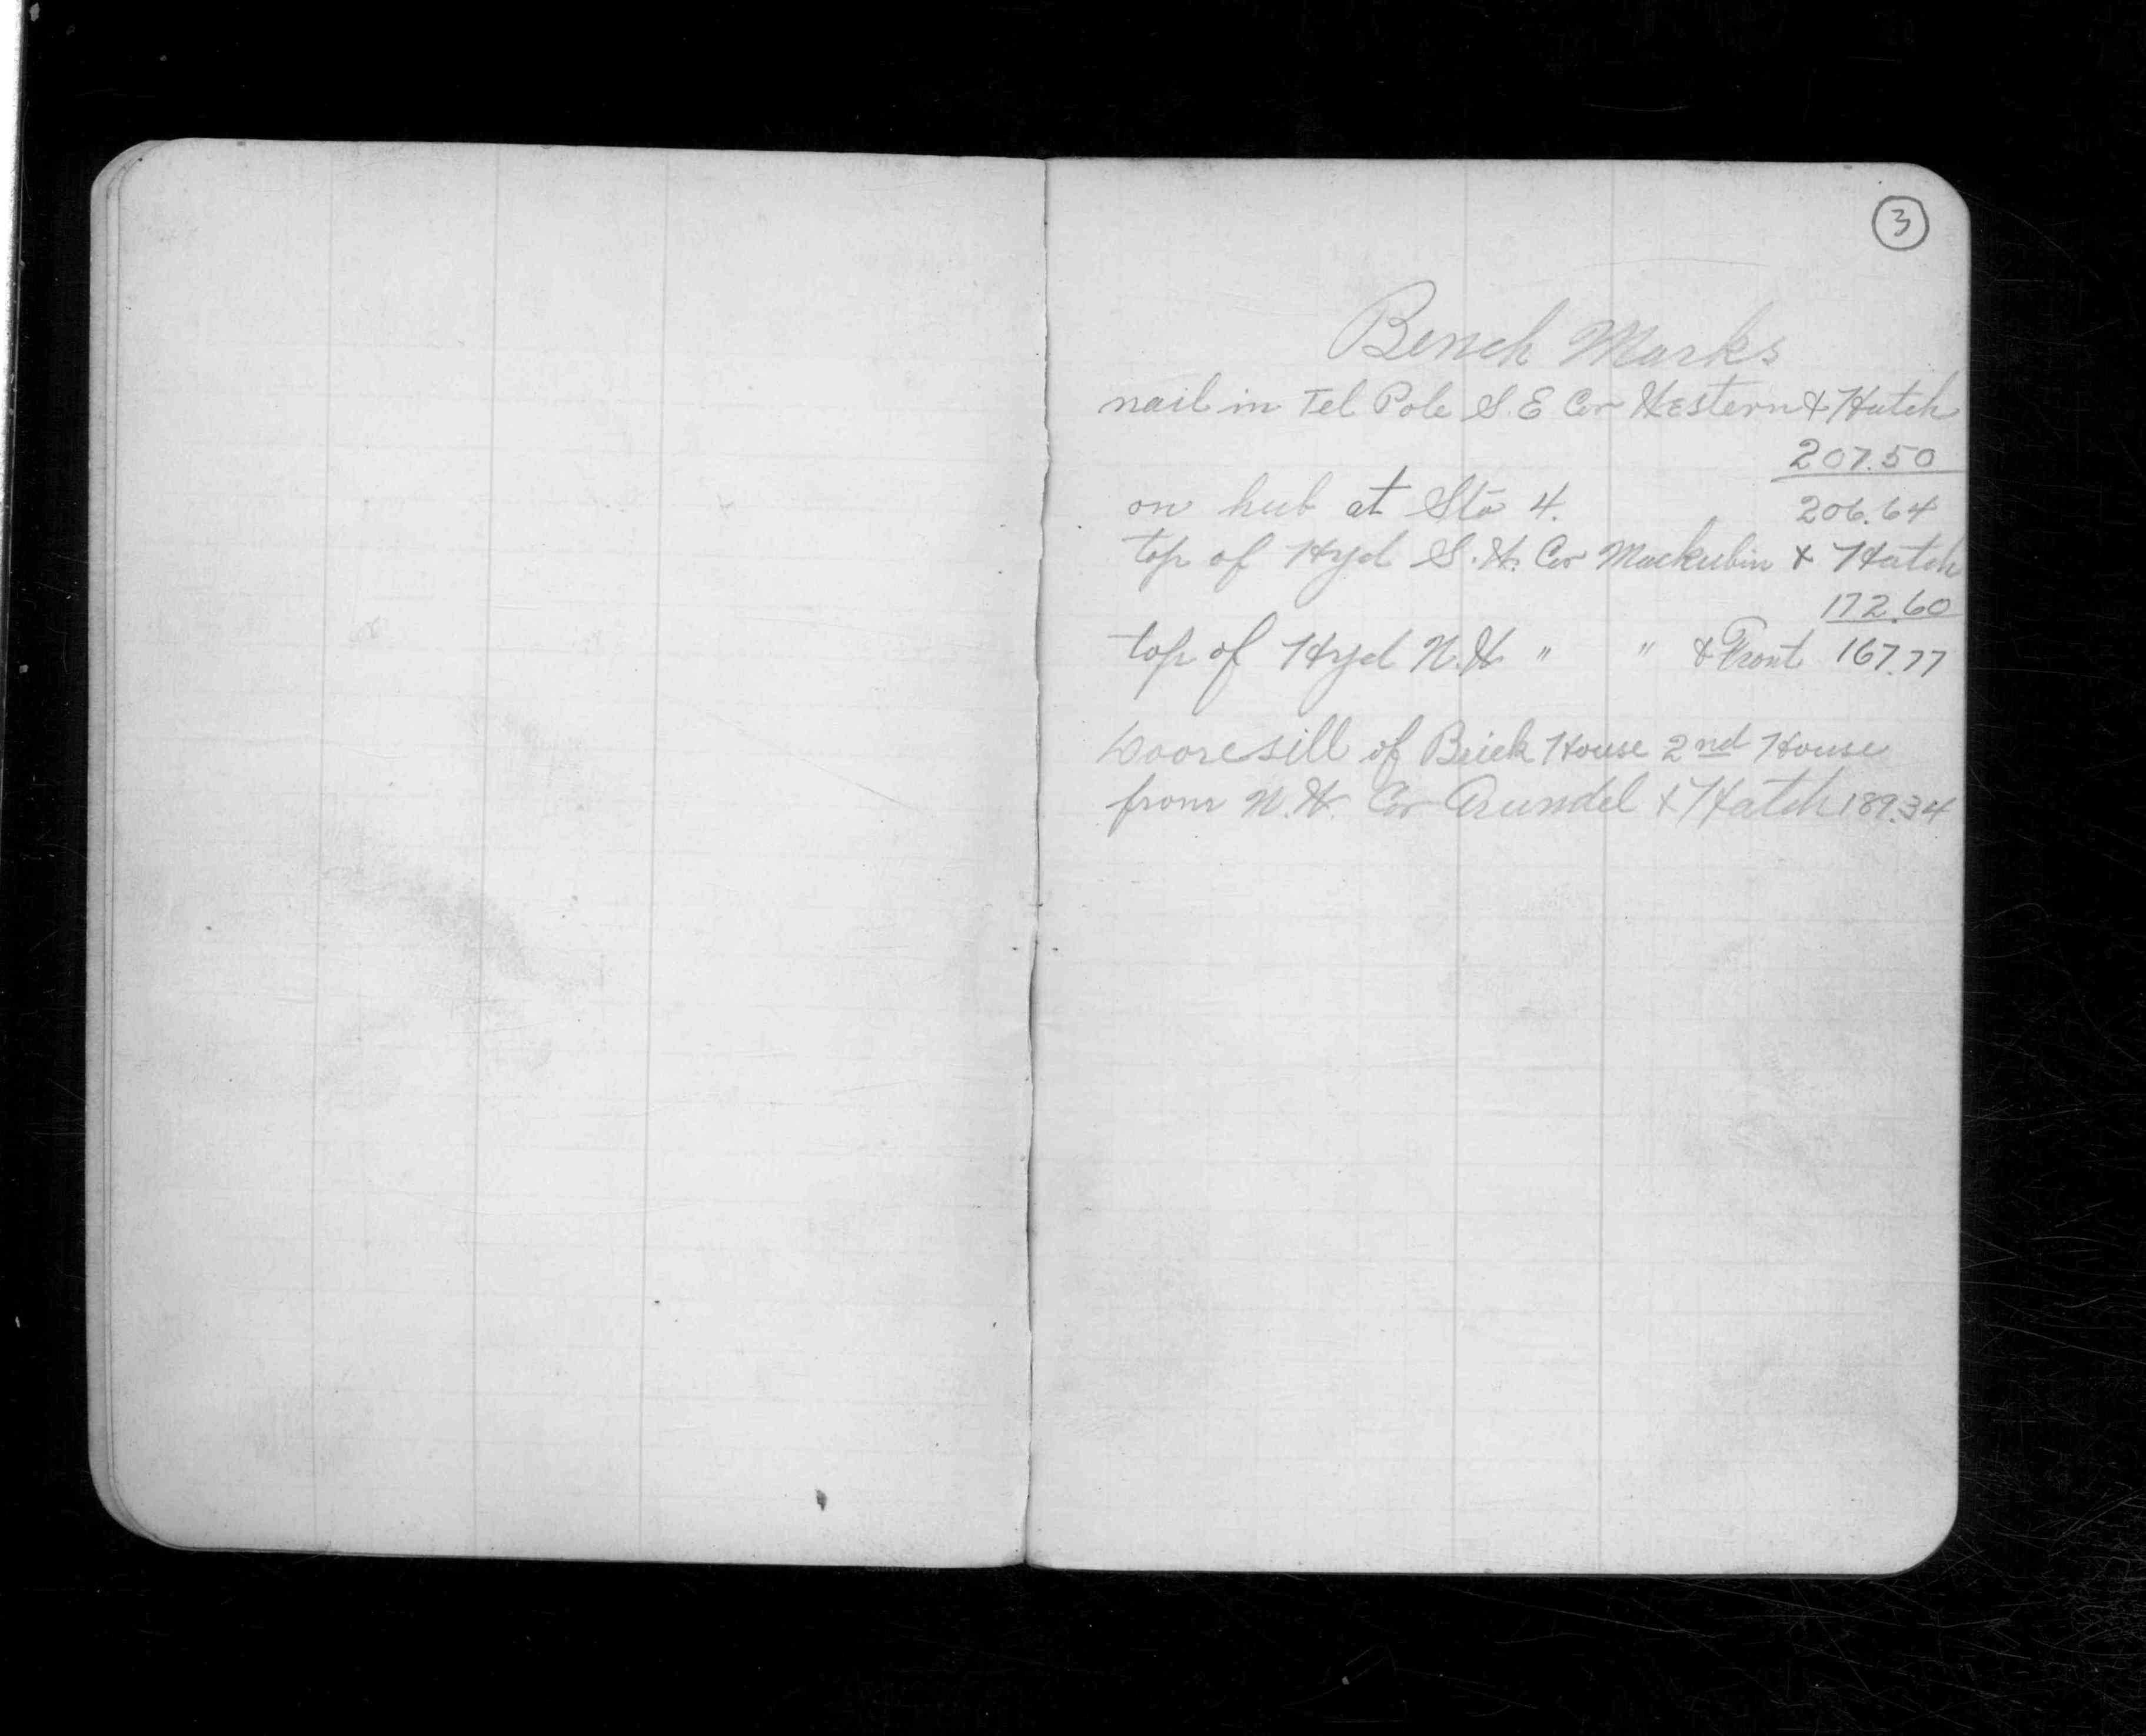 3
Bench Marks
nail in Tel Pole S. E Cor Western & Hatch
207.50
on hub at Sta 4. 206.64
top of Hyd S. W. Cor Mackubin & Hatch
172.60
top of Hyd N. W. " " & Front 167.77
Dooresill of Brick House 2nd House
from N. W. Cor Arundel & Hatch 189.34